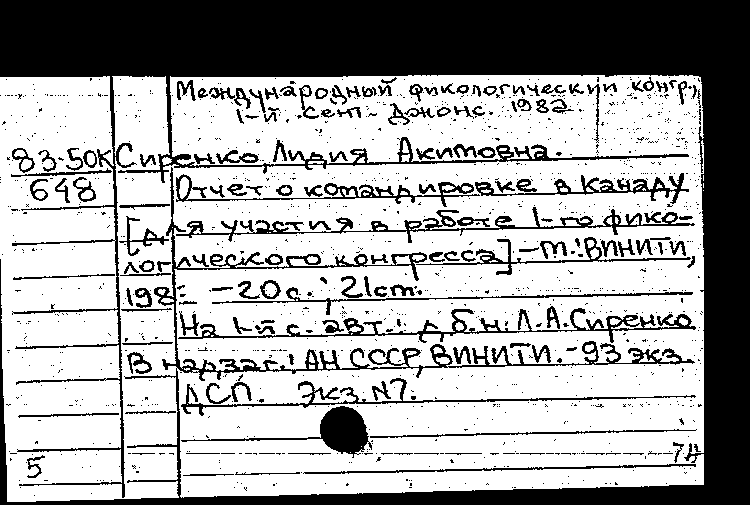 Международный фикологический конгр.,
1-й. Сент-Джонс. 1982
83-50К Сиренко, Лидия Акимовна.
648 Отчет о командировке в Канаду
[для участия в работе 1-го фико-
логического конгресса].-М.:ВИНИТИ,
198 -20с.; 21cm.
На 1-й с. авт.: д.б.н. Л.А.Сиренко
В надзаг.: АН СССР, ВИНИТИ.-93 экз.
ДСП. Экз. N7.
5